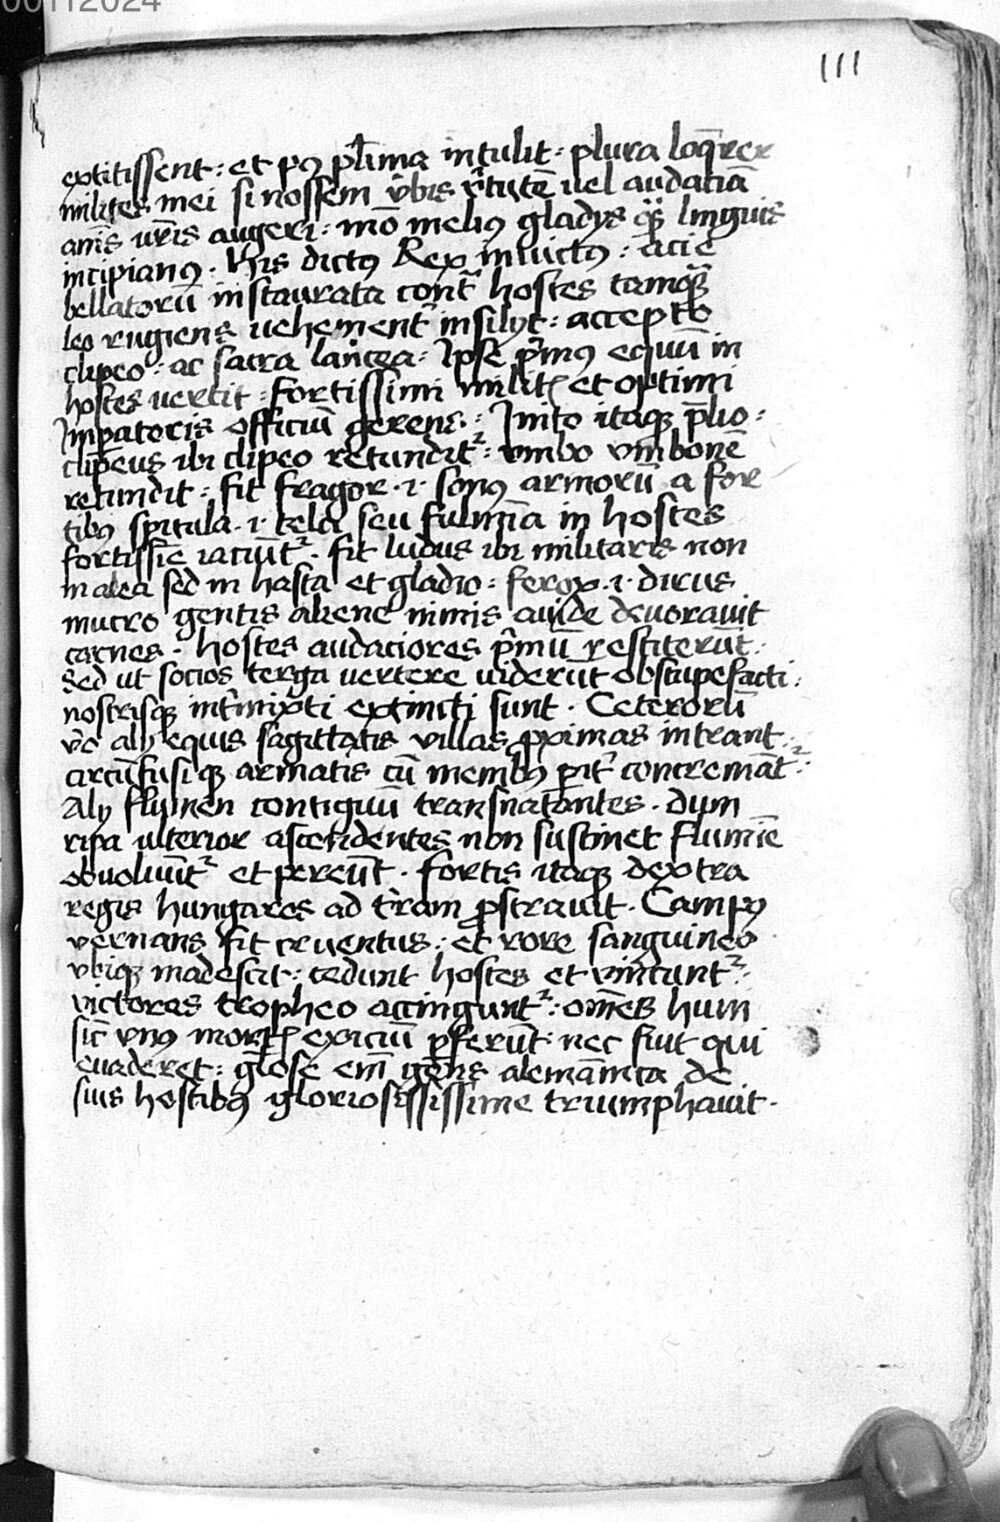 00112024
111
extitissent : et poꝰ pl̄ima intulit : plura loq̄rer
milites mei si nossem v̾bis v̾tutē uel audatiā
anīs vr̄is augeri : mō melꝰ gladijs qͣꝫ linguis
incipianꝰ . His dictꝰ Rex inuictꝰ : acie
bellatorū instaurata cont̾ hostes tamqͣꝫ
leo rugiens uehement̾ insilijt : accepto
clipeo : ac sacra lancea : Ipse p̾mꝰ equū in
hostes uertit : fortissimi militꝭ et optimi
Imꝑatoris officiū gerens : Inito itaqꝫ p̄lio :
clipeus ibi clipeo retundit᷑ : vmbo vmbonē
retundit : fit fragor .i. sonꝰ armorū a for
tibꝰ spitula .i. tela seu fulmīa in hostes
fortissīe iaciūt᷑ . fit ludus ibi militaris non
in alea sed in hasta et gladio : ferox .i. dirus
mucro gentis aliene nimis auide deuorauit
carnes . hostes audaciores p̾mū restiterūt .
Sed ut socios terga uertere uiderūt obstupefacti :
nostrisqꝫ int̾mixti extincti sunt . Ceterorū
v̾o alij equis sagittatis villas ꝓximas intrant .
circūfusiqꝫ armatis cū menibꝰ ꝑit̾ concremāt᷑ :
Alij flumen contiguū transnatantes . dum
ripa ulterior ascendentes non sustinet flumīe
obuoluūt᷑ et pereūt . fortis itaqꝫ dextra
regis hungares ad t̾ram ꝓstrauit . Campꝰ
vernans fit cruentus : et rore sanguineo
vbiqꝫ madescit : cedunt hostes et vincunt᷑ :
victores tropheo accingunt᷑ : om̄es hum
sic̄ vnꝰ mortꝭ exiciū ꝑferūt : nec fiut qui
euaderet : gl̄ose em̄ gens alemānica de
suis hostibꝰ gloriosississime triumphauit .